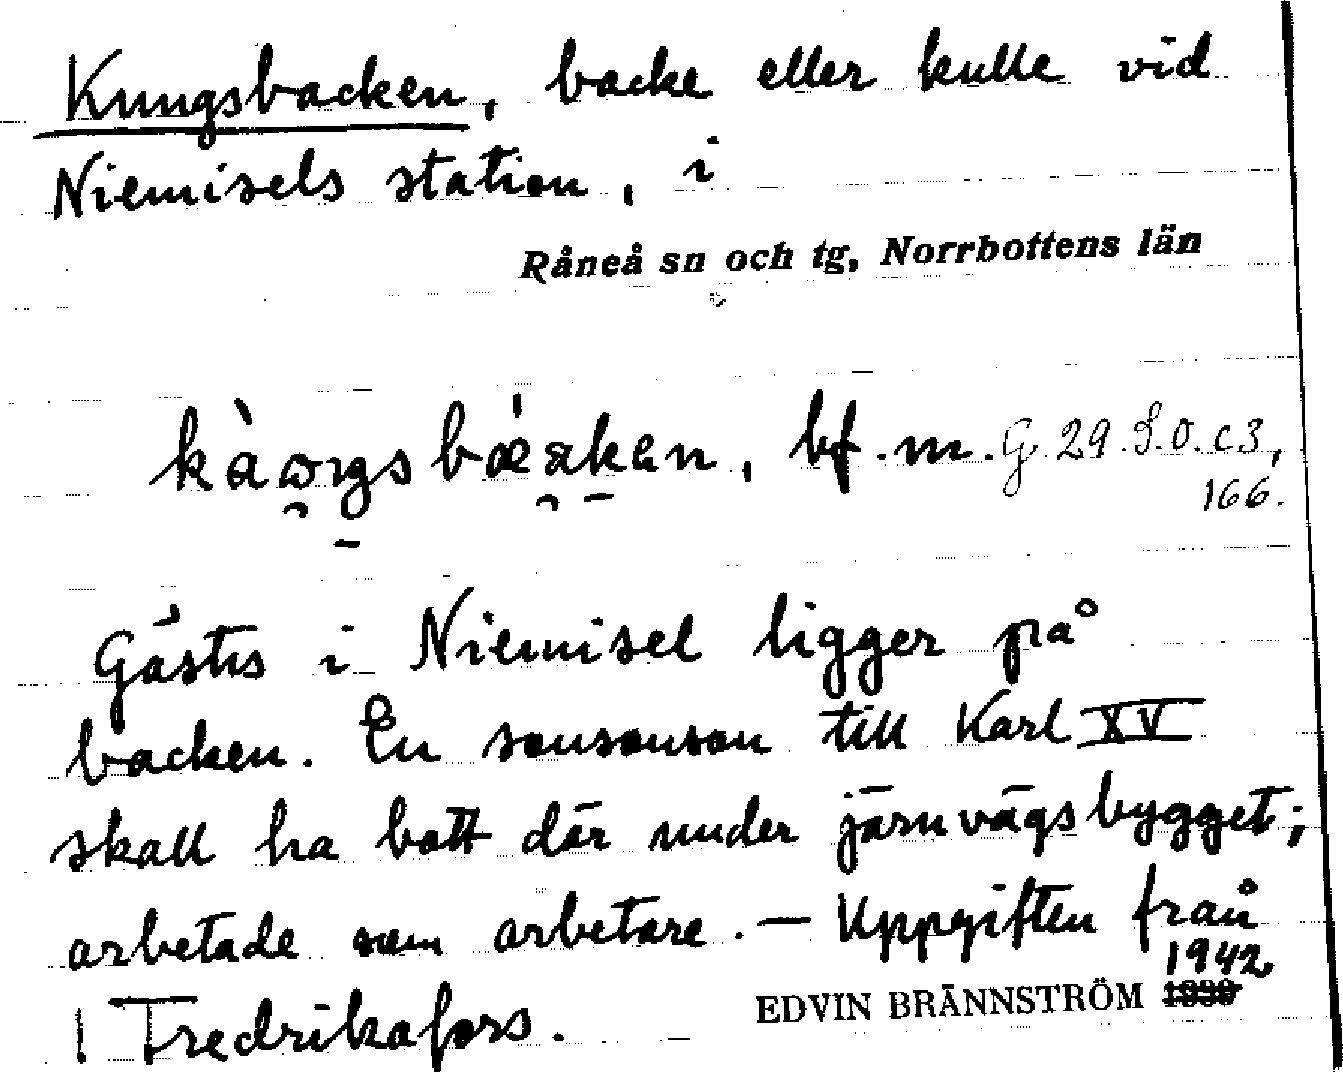 Kungsbacken, backe eller kulle vid
Niemisels station, i
Råneå sn och tg, Norrbottens län
bf. m. G. 29. S.O. c3,
166.
Gästis i Niemisel ligger på
backen. En sonsonson till Karl XV
skall ha bott där under järnvägsbygget;
arbetade som arbetare. — Uppgiften från
1942
Fredrikafors.
EDVIN BRÄNNSTRÖM 1939